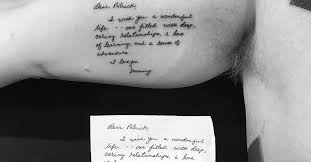 Dear Patrick,
I wish you a wonderful
life -- one filled with deep,
caring relationships, a love
of learning, and a sense of
adventure
I love you
Mommy
Dear Patrick,
I wish you a wonderful
life -- one filled with deep,
caring relationships, a love